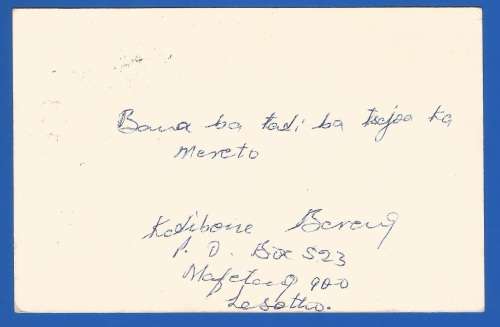 Bana ba tadi ba tsejoa ka
mereto
Kedibone Bereng
P. O. Box 523
Mafeteng 900
Lesotho.